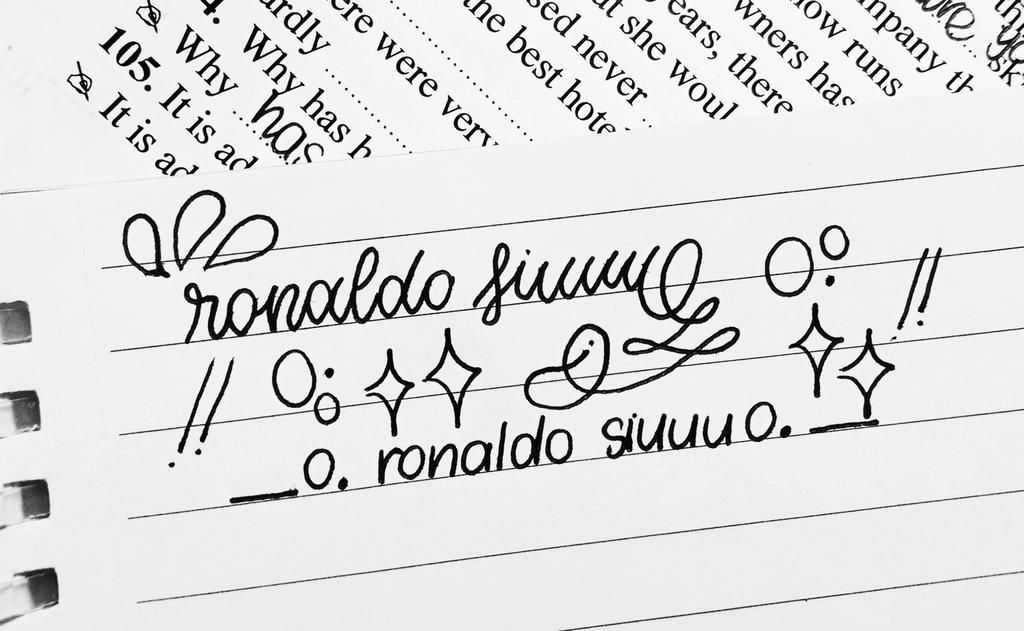 4. Why has b
ardly
Why has
105. It is ad
It is ad
ere were very
the best hote
sed never
at she woul
ears, there
wners has
now runs
mpany th
ronaldo siuuuu
o. ronaldo siuuuu o.